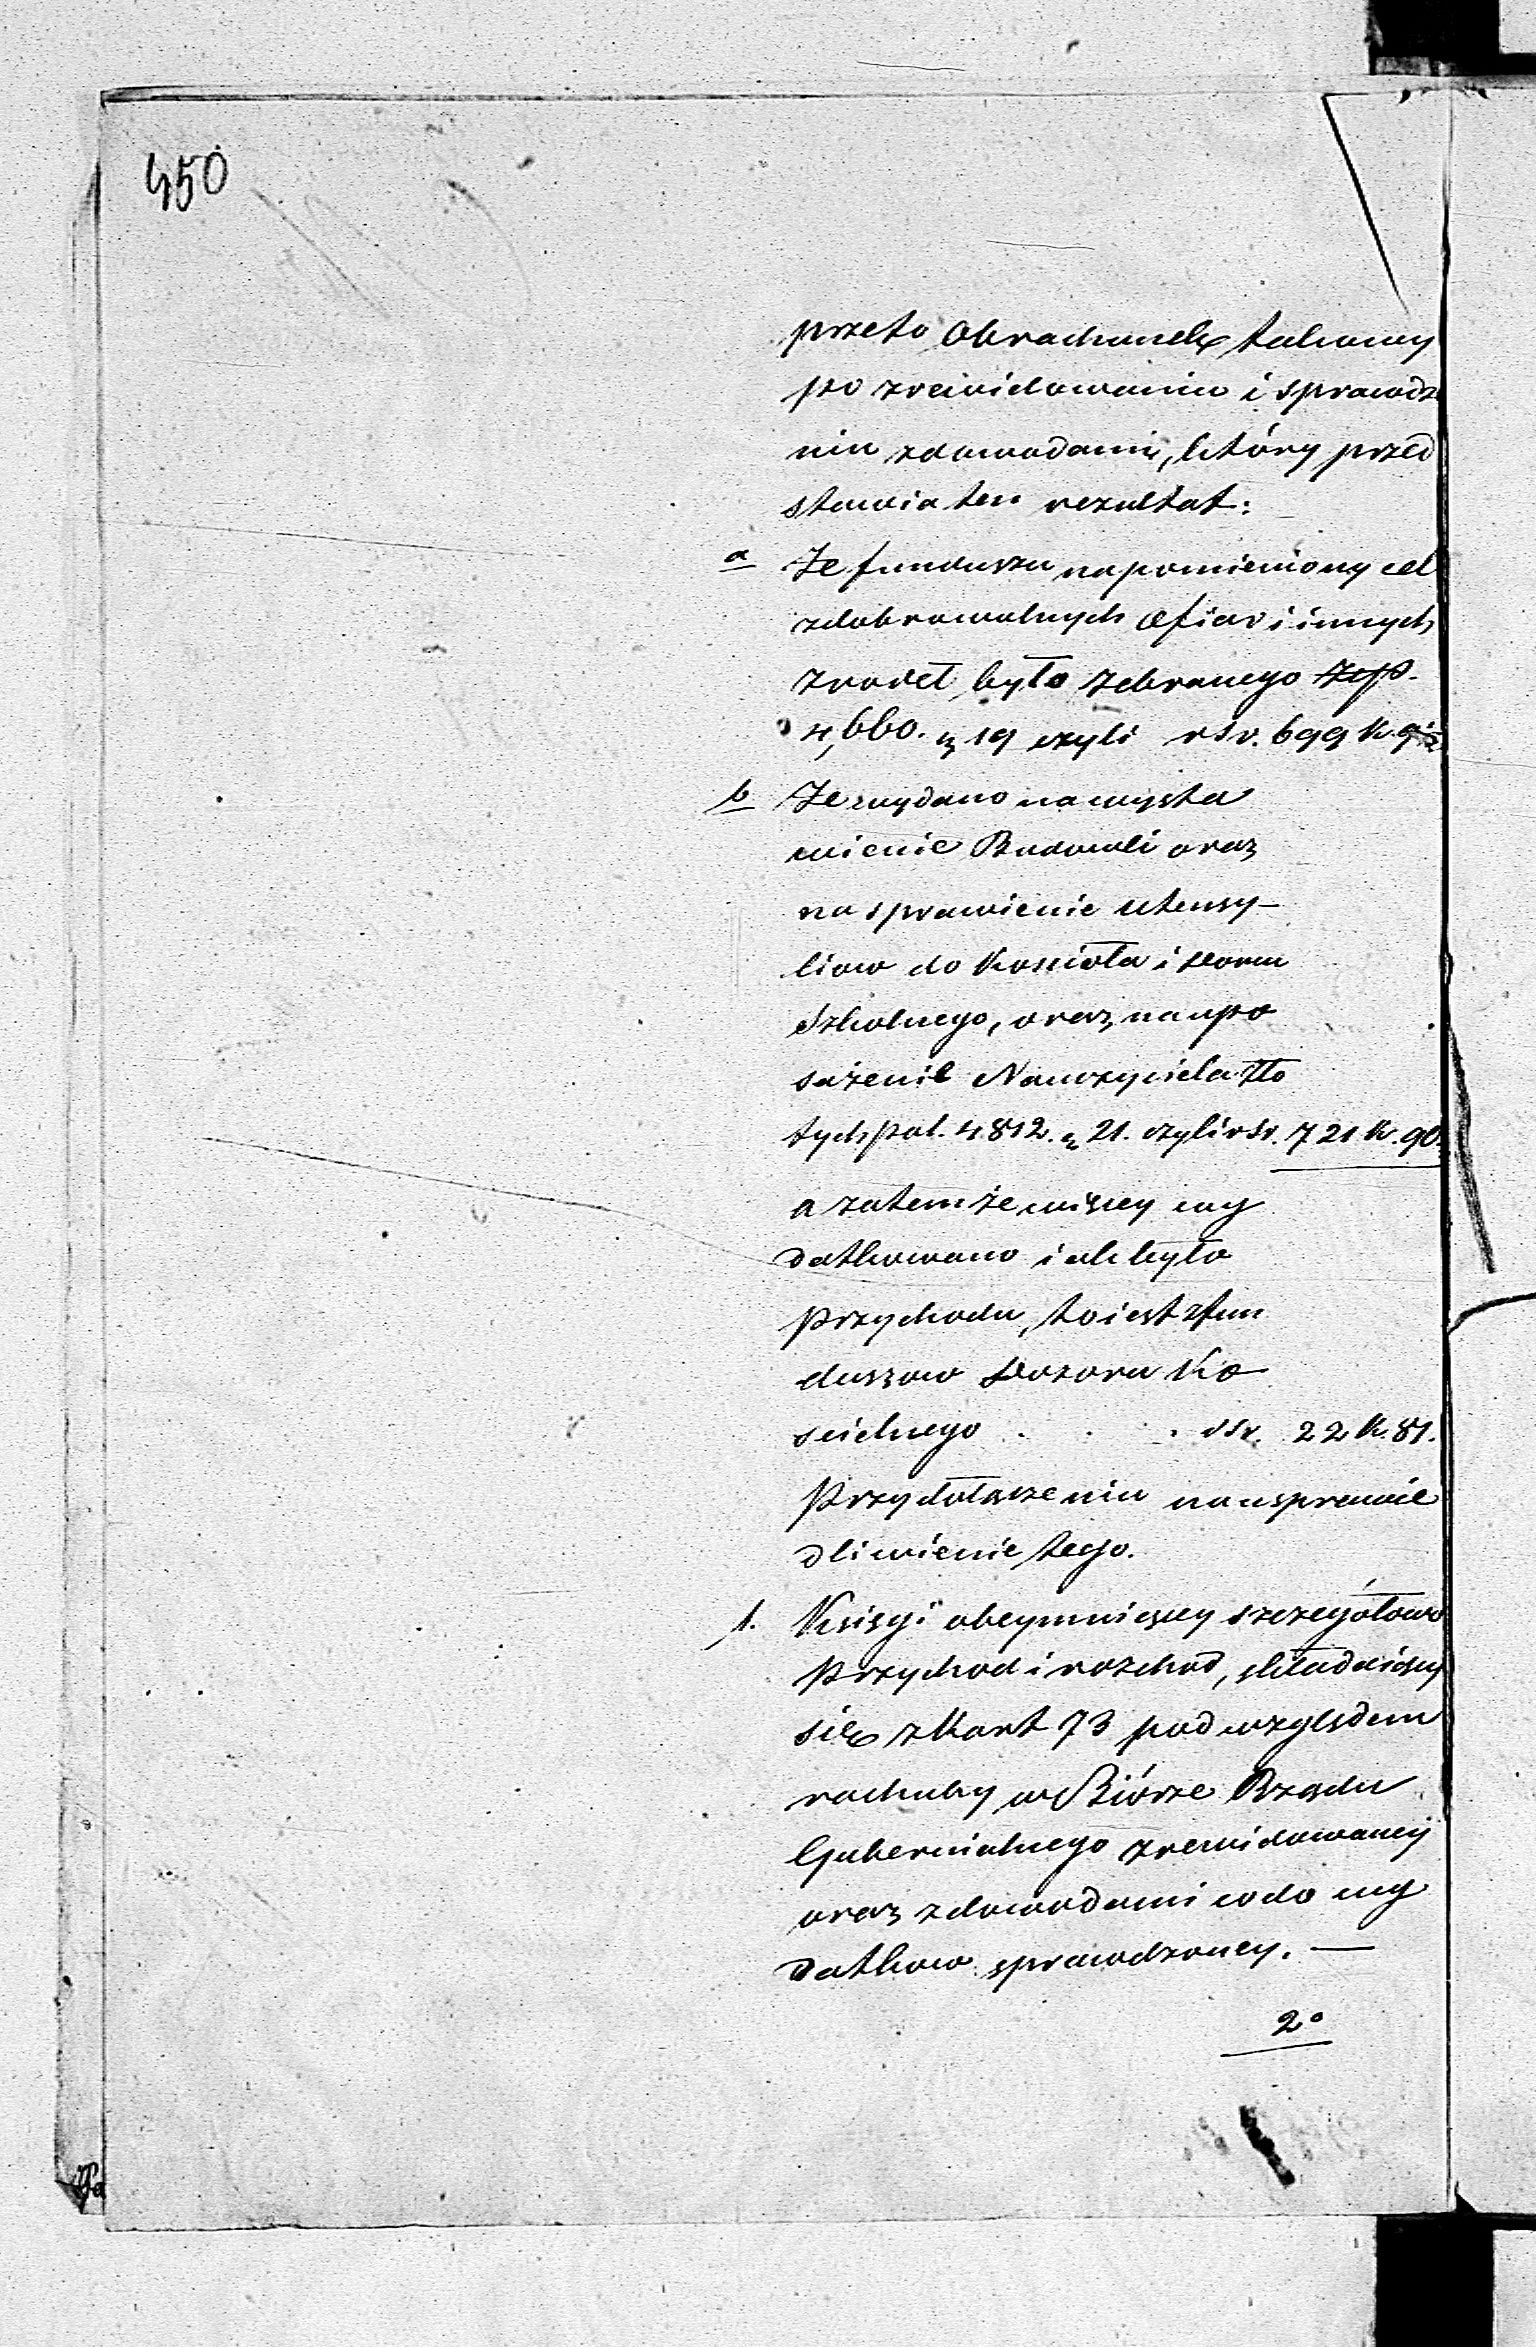 450
przeto Obrachunek takowy
po zrewidowaniu i sprawdze
niu zdowodami, który przed
stawia ten rezultat:
a Że funduszu na pomieniony cel
zdobrowolnych Ofiar i innych
zrodeł było zebranego Złp.
4,660. gr 19 czyli rsr. 699 k. 9½
b Że wydano na wysta
wienie Budowli oraz
na sprawienie utensy-
liow do Kościoła i Domu
Szkolnego, oraz na upo
sażenie Nauczyciela Zło
tych pol. 4812. gr 21. czyli rsr. 721 k. 90.
a zatem że więcey wy
datkowano iak było
Przychodu, to iest zfun
duszow Dozoru Ko
scielnego . . . rsr. 22 k. 81.
Przy dołączeniu na usprawie
dliwienie tego.
1. Księgi obeymuiącey szczegółowo
Przychod i rozchod, składaiący
się z Kart 73 pod względem
rachuby w Biórze Rządu
Gubernialnego zrewidowaney
oraz zdowodami co do wy
datkow sprawdzoney. —
2°